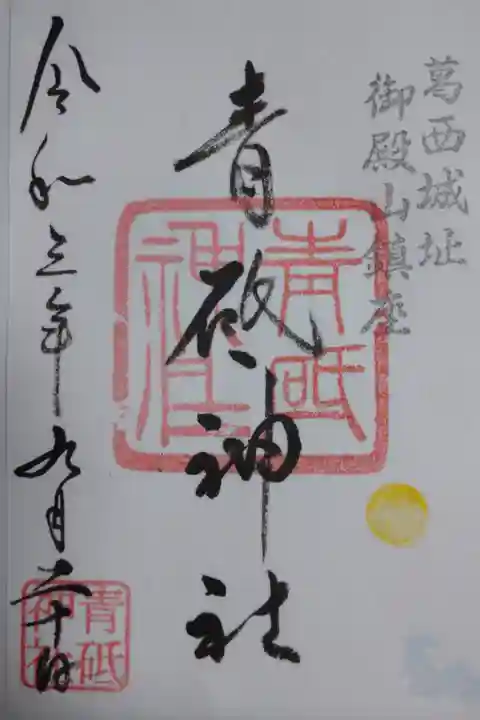 葛西城址
御殿山鎮座
青砥神社
青砥
神社
令和三年九月二十日
青砥
神社